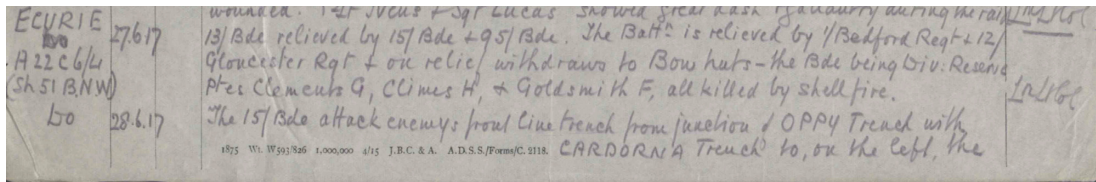 wounded. Lt Ivens & Sgt Lucas showed great dash & gallantry during the raid
ECURIE
do 27.6.17 13/Bde relieved by 15/Bde & 95/Bde. The Battn is relieved by 1/Bedford Regt & 12/
A22C6/4 Gloucester Rgt & on relief withdraws to Bow huts – the Bde being Div: Reserve
(Sh 51 B,NW) Ptes Clements G, Climes H, & Goldsmith F, all killed by shellfire.
do 28.6.17 The 15/Bde attack enemys front line trench from junction of OPPY Trench with
CARDORNA Trench to, on the left, the
1875 Wt. W593/826 1,000,000 4/15 J.B.C. & A. A.D.S.S./Forms/C. 2118.